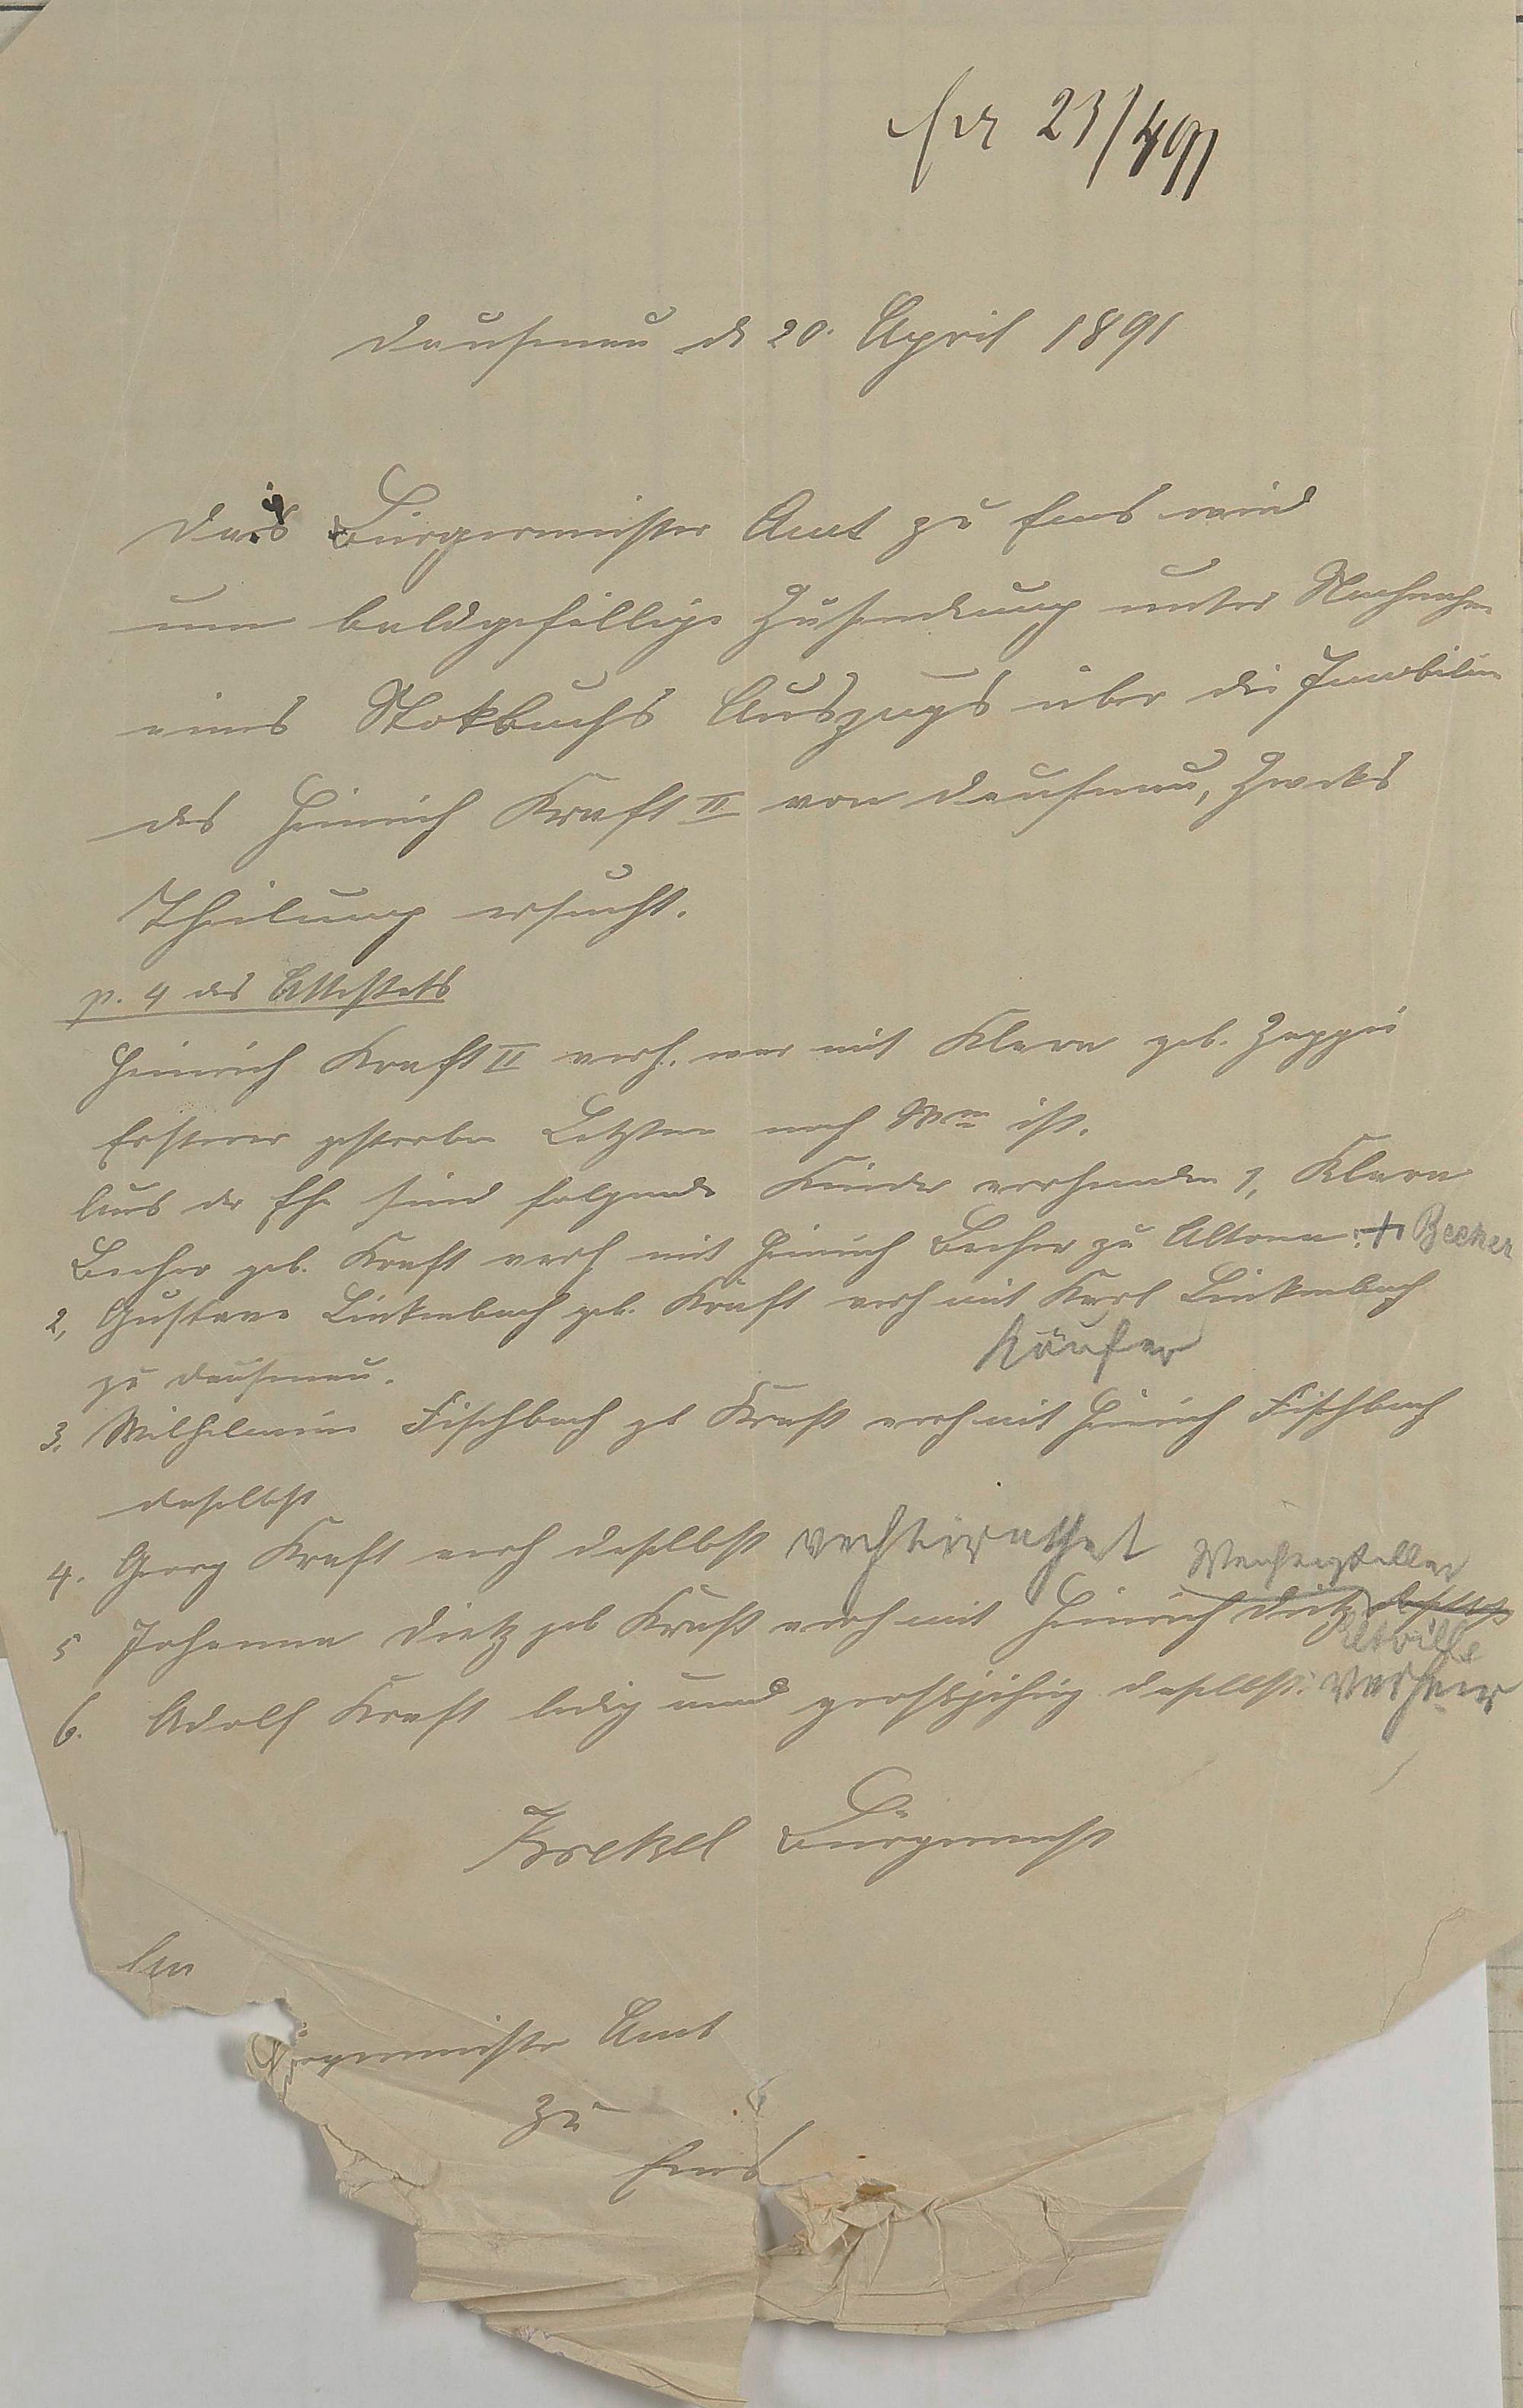 23/4 91
Dausenau d 20. April 1891
Das Bürgermeister Amt zu Ems wird
um baldgefällige Zusendung unter Nachnahme
eines Stokbuchs Auszugs über die Imobilien
des Heinrich Kraft II von Dausenau, Zweks
Theilung ersucht.
p. 4 des Attestats
Heinrich Kraft II verh. war mit Klara geb.
Ersterer gestorben Letztere noch ist.
Aus der Ehe sind folgende Kinder vorhanden 1, Klara
Becher geb. Kraft verh mit Heinrich Becher zu Altona. + Becker
2, Gustave Linkenbach geb. Kraft verh mit Karl Linkenbach
zu Dausenau. Käufer
3. Wilhelmine Fischbach gb Kraft verh mit Heinrich Fischbach
daselbst
4. Georg Kraft verh daselbst verheirathet
5 Johanna Dietz geb Kraft verh mit Heinrich Dietz daselbst
Eltville
6. Adolf Kraft ledig und grosjährig daselbst.
Bürgermst
An
Bürgermeister Amt
zu
Ems